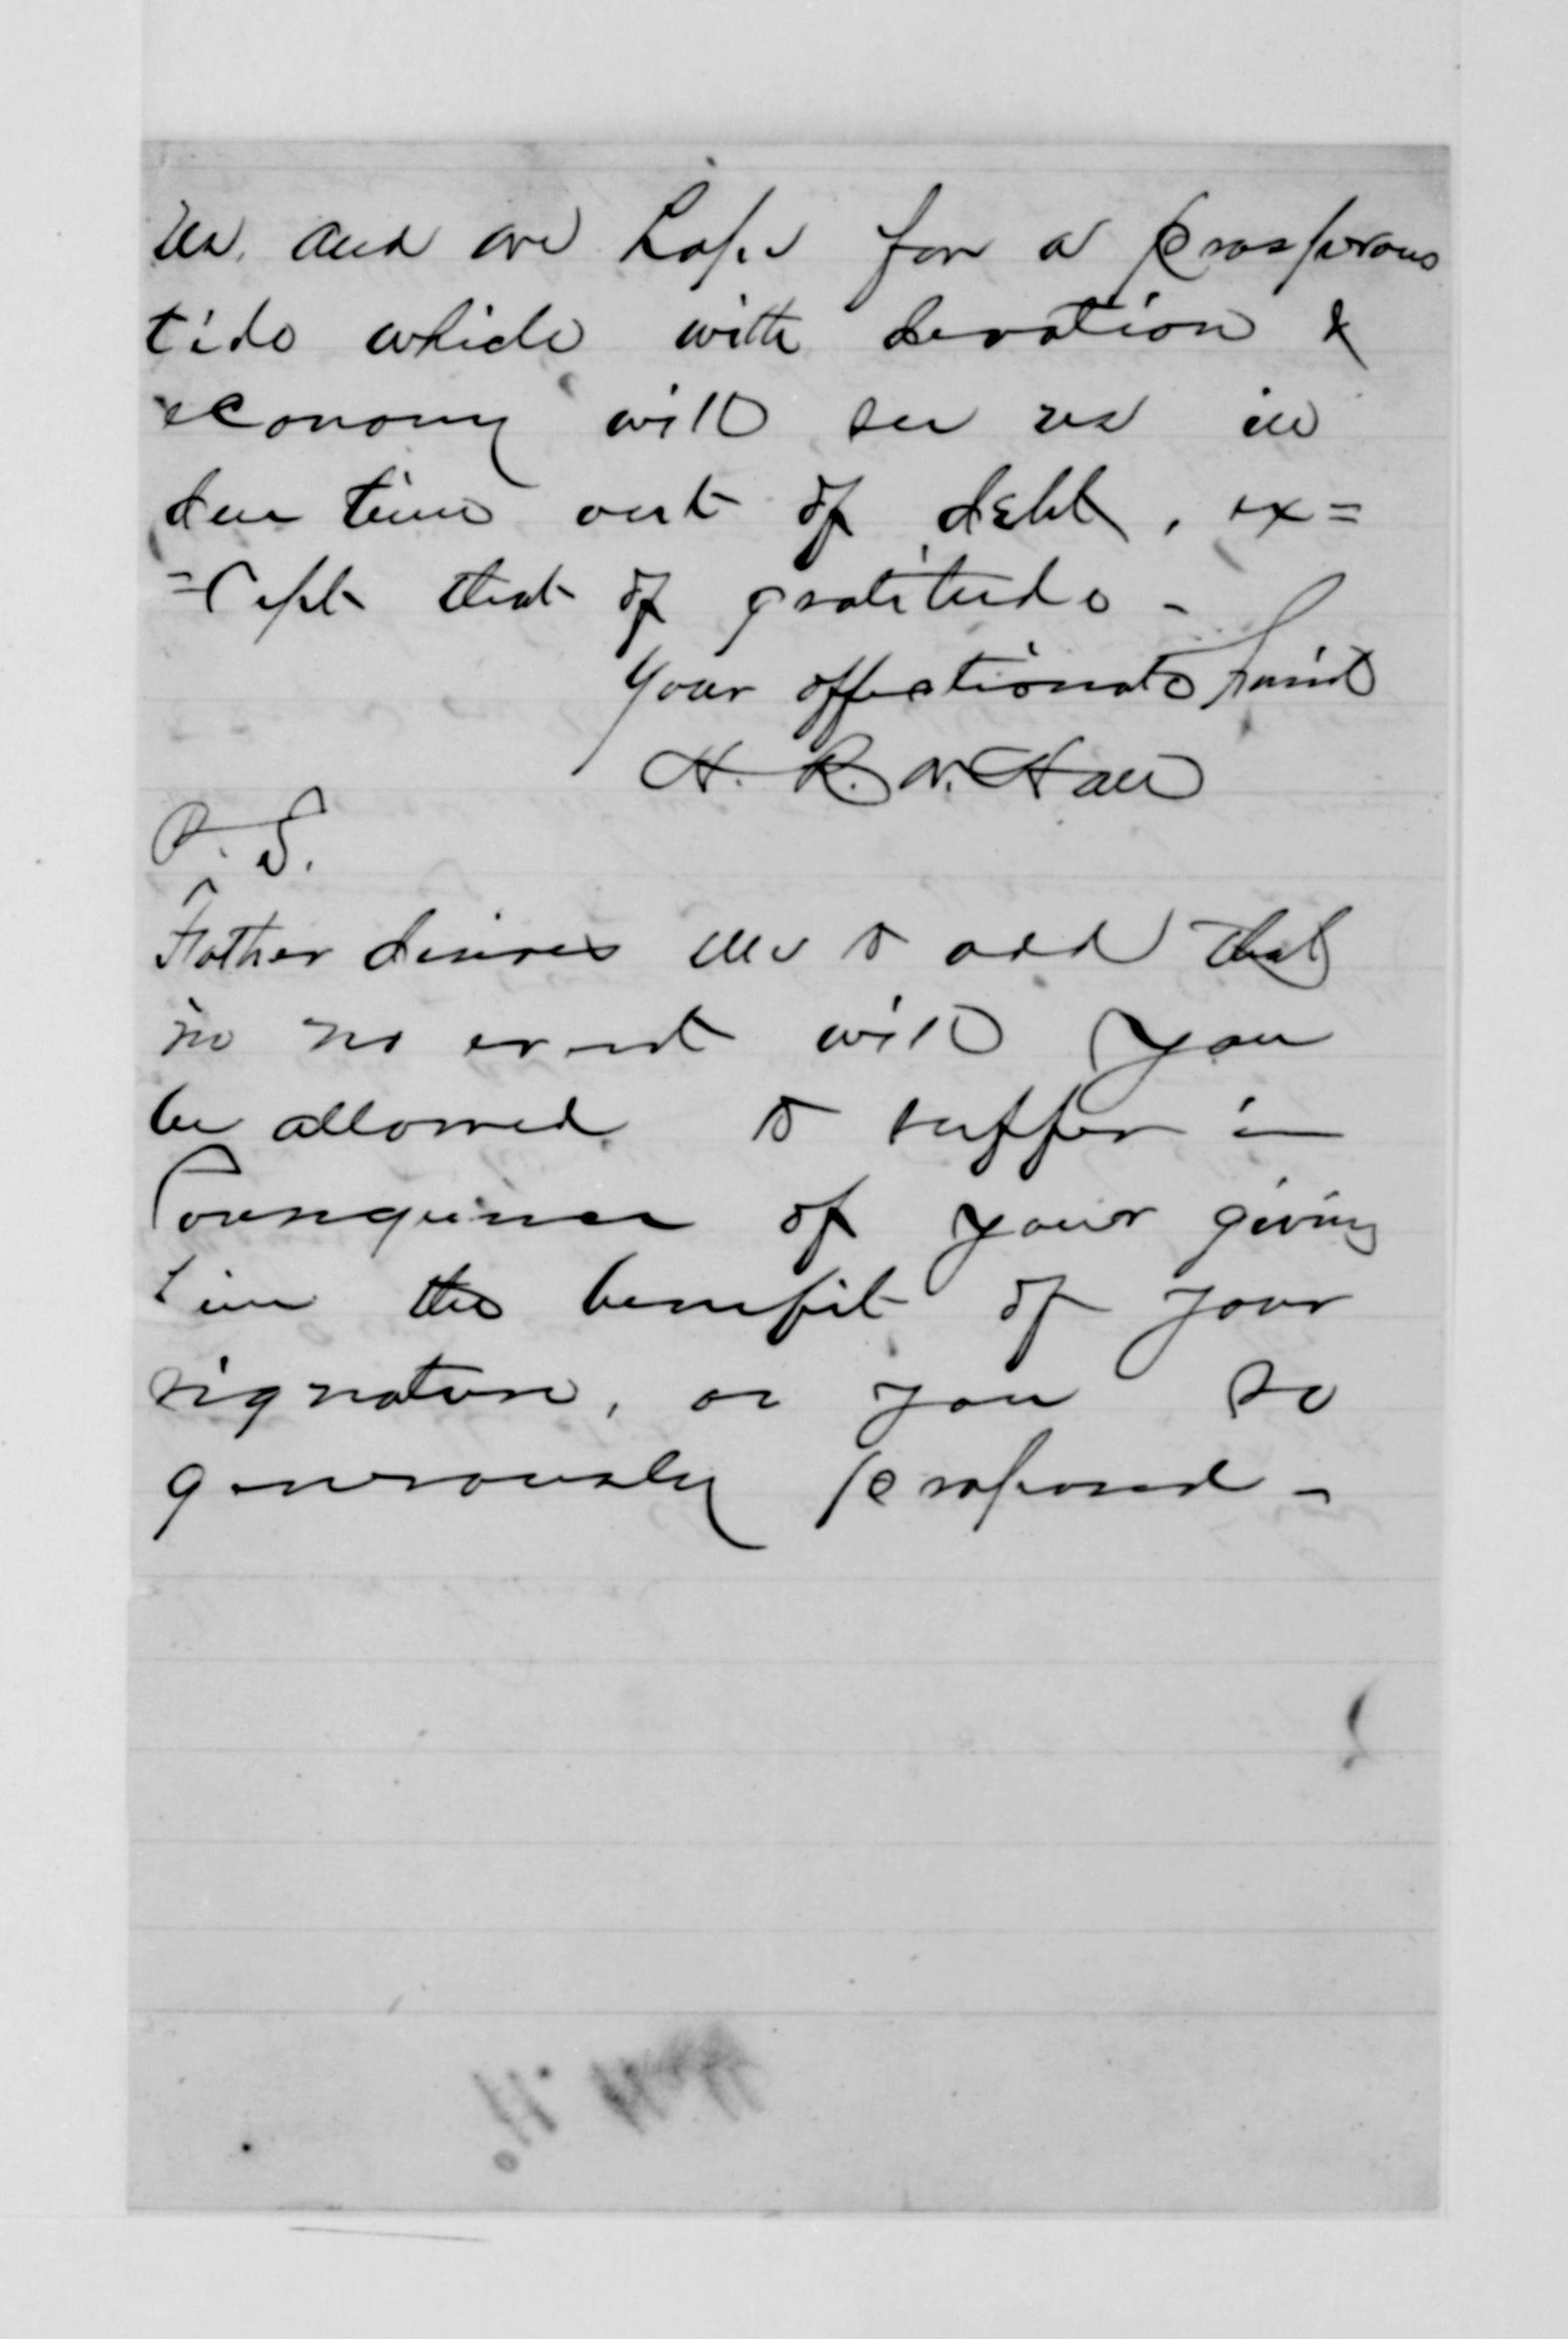 us, and we hope for a prosperous
tide which with devotion &
economy will see us in
due time out of debt, ex=
=cept that of gratitude -
Your affectionate friend
H. R. W. Hall
P. S.
Father desires me to add that
in no event will you
be allowed to suffer in
Consequence of your giving
him the benefit of your
signature, as you so
generously proposed -